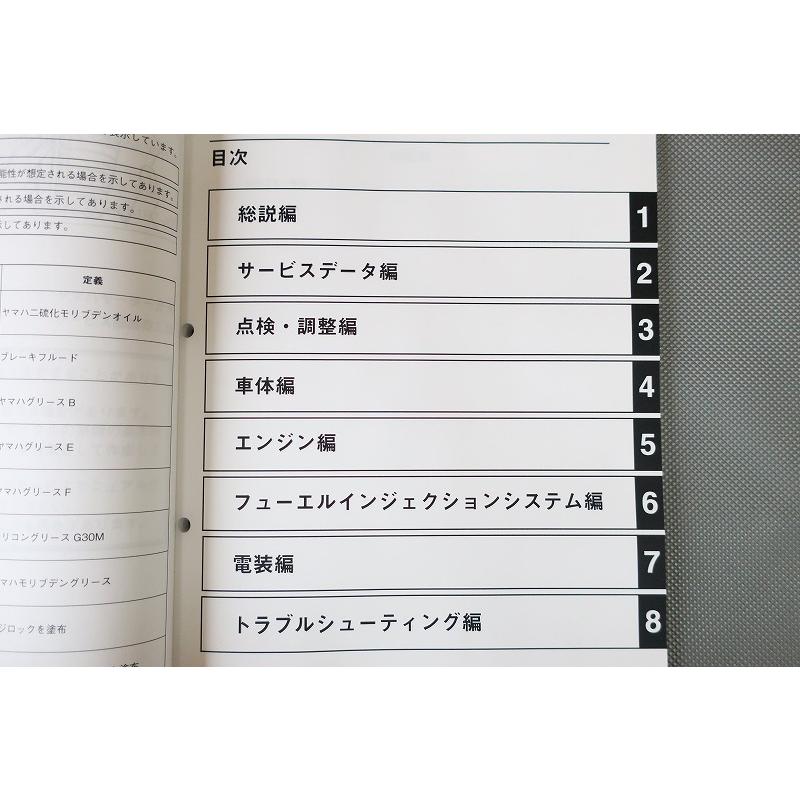 示しています。
能性が想定される場合を示してあります。
される場合を示してあります。
示してあります。
定義
ヤマハ二硫化モリブデンオイル
ブレーキフルード
ヤマハグリース B
ヤマハグリース E
ヤマハグリース F
リコングリース G30M
マハモリブデングリース
ジロックを塗布
を塗布
目次
総説編 1
サービスデータ編 2
点検・調整編 3
車体編 4
エンジン編 5
フューエルインジェクションシステム編 6
電装編 7
トラブルシューティング編 8